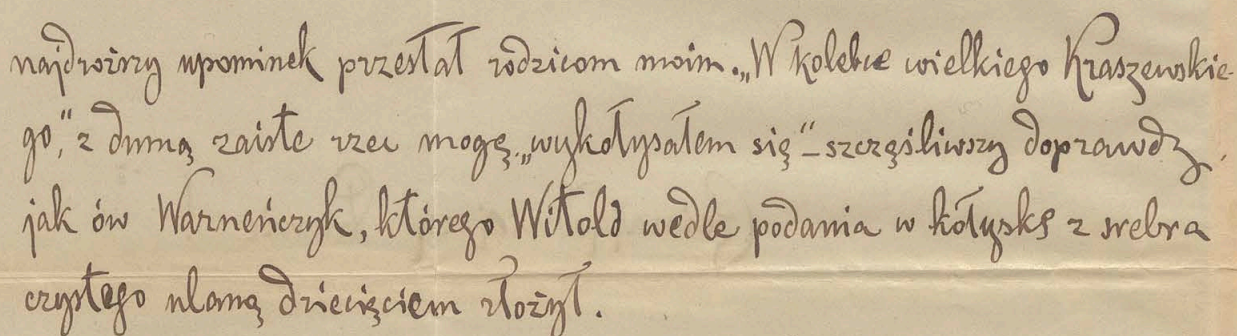 najdroższy upominek przesłał rodzicom moim. „W kolebce wielkiego Kraszewskie-
go,” z dumą zaiste rzec mogę, „wykołysałem się” – szczęśliwszy doprawdy,
jak ów Warneńczyk, którego Witold wedle podania w kołyskę z srebra
czystego ulaną dziecięciem złożył.